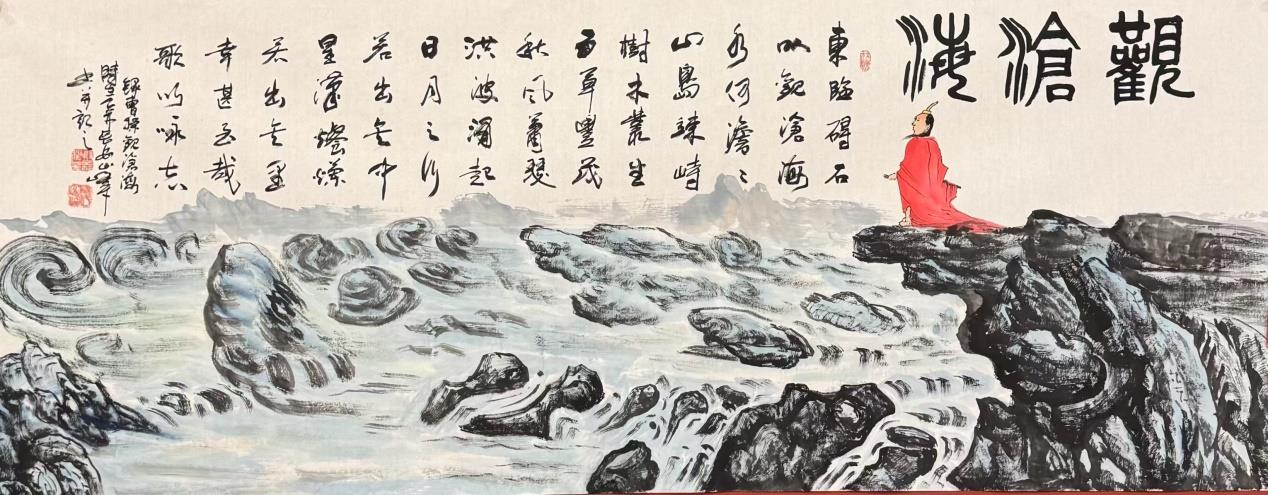 觀滄海
東臨碣石
以觀滄海
水何澹々
山島竦峙
樹木叢生
百草豐茂
秋風蕭瑟
洪波涌起
日月之行
若出其中
星漢燦爛
若出其里
幸甚至哉
歌以咏志
錄曹操觀滄海
年長安山峰